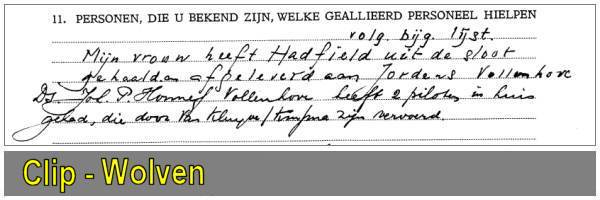 11. PERSONEN, DIE U BEKEND ZIJN, WELKE GEALLIEERD PERSONEEL HIELPEN
volg. bijg. lijst.
Mijn vrouw heeft Hadfield uit de sloot
gehaald en afgeleverd aan Jordens Vollenhove
Ds. Joh. P. Vollenhove heeft 2 piloten in huis
gehad, die door van Kluyve / zijn vervoerd.
Clip - Wolven